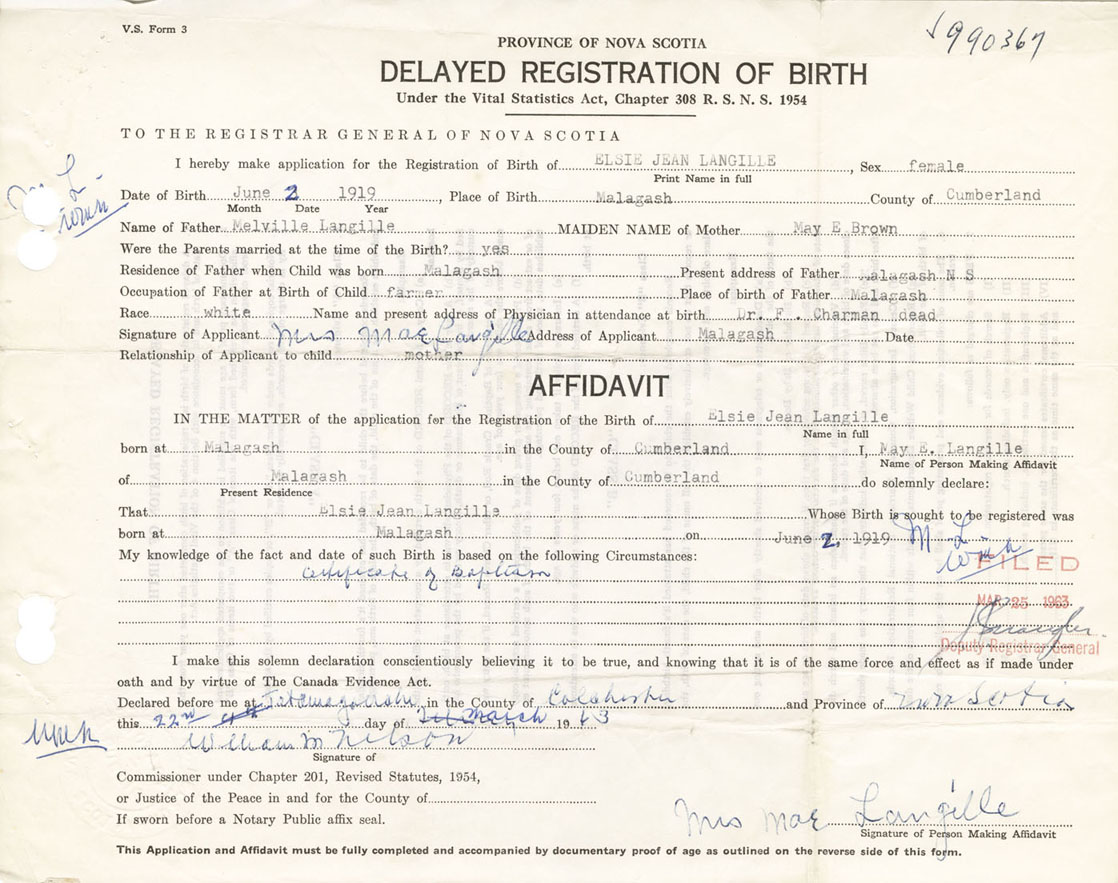 V.S. Form 3
990367
PROVINCE OF NOVA SCOTIA
DELAYED REGISTRATION OF BIRTH
Under the Vital Statistics Act, Chapter 308 R. S. N. S. 1954
TO THE REGISTRAR GENERAL OF NOVA SCOTIA
I hereby make application for the Registration of Birth of ELSIE JEAN LANGILLE, Sex female
Print Name in full
Date of Birth June 2 1919, Place of Birth Malagash County of Cumberland
Month Date Year
Name of Father Melville Langille MAIDEN NAME of Mother May E Brown
Were the Parents married at the time of the Birth? yes
Residence of Father when Child was born Malagash Present address of Father Malagash N S
Occupation of Father at Birth of Child farmer Place of birth of Father Malagash
Race white Name and present address of Physician in attendance at birth Dr. F. Charman dead
Signature of Applicant Mrs Mae Langille Address of Applicant Malagash Date
Relationship of Applicant to child mother
AFFIDAVIT
IN THE MATTER of the application for the Registration of the Birth of Elsie Jean Langille
Name in full
born at Malagash in the County of Cumberland I, May E. Langille
Name of Person Making Affidavit
of Malagash in the County of Cumberland do solemnly declare:
Present Residence
That Elsie Jean Langille Whose Birth is sought to be registered was
born at Malagash on June 2, 1919 M. L.
My knowledge of the fact and date of such Birth is based on the following Circumstances:
Certificate of Baptism
FILED
MAR 25 1963
Deputy Registrar General
I make this solemn declaration conscientiously believing it to be true, and knowing that it is of the same force and effect as if made under
oath and by virtue of The Canada Evidence Act.
Declared before me at Tatamagouche in the County of Colchester and Province of Nova Scotia
this 22nd day of March 1963
William M Nelson
Signature of
Commissioner under Chapter 201, Revised Statutes, 1954,
or Justice of the Peace in and for the County of
If sworn before a Notary Public affix seal.
Mrs Mae Langille
Signature of Person Making Affidavit
This Application and Affidavit must be fully completed and accompanied by documentary proof of age as outlined on the reverse side of this form.